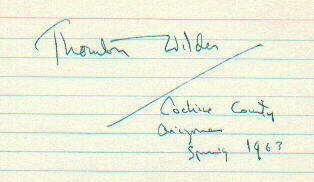 Thornton Wilder
Cochise County
Arizona
Spring 1963